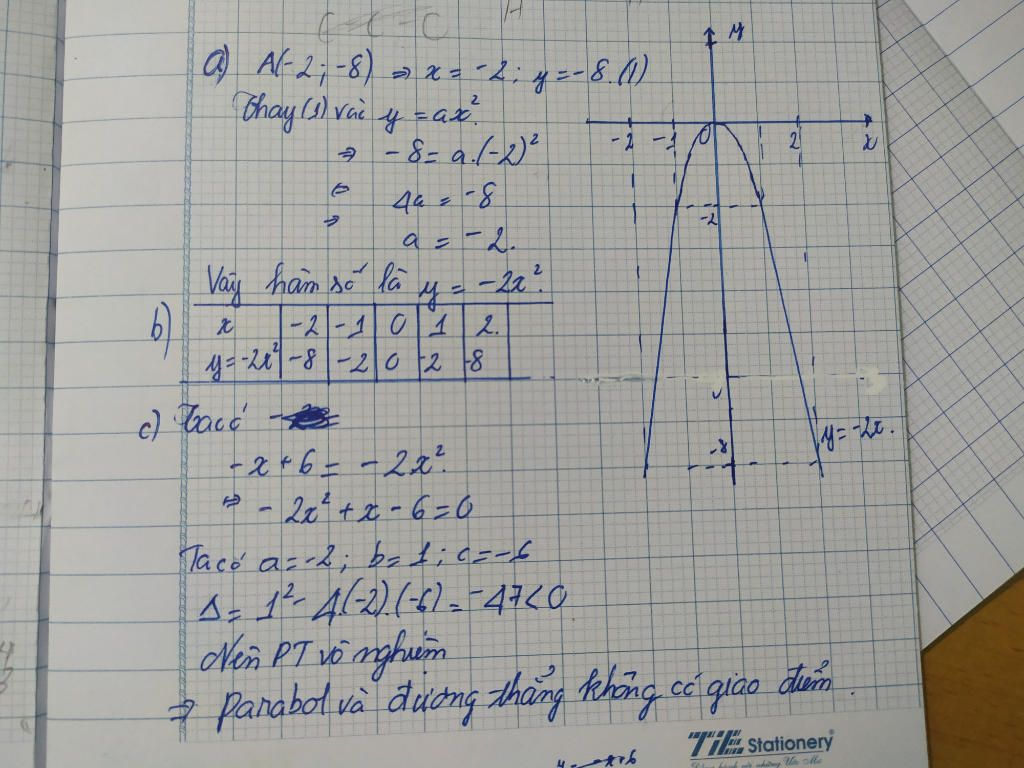 a) A(-2; -8) ⇒ x = -2; y = -8. (1)
Thay (1) vào y = ax².
⇒ -8 = a.(-2)²
⇔ 4a = -8
⇒ a = -2.
Vậy hàm số là y = -2x².
b) x -2 -1 0 1 2.
y = -2x² -8 -2 0 -2 -8
c) Ta có
-x + 6 = -2x².
⇔ -2x² + x - 6 = 0
Ta có a = -2; b = 1; c = -6
Δ = 1² - 4.(-2).(-6) = -47 < 0
Nên PT vô nghiệm
⇒ Parabol và đường thẳng không có giao điểm.
y
-2 -1 0 2 x
-2
-8
y = -2x.
TiE Stationery